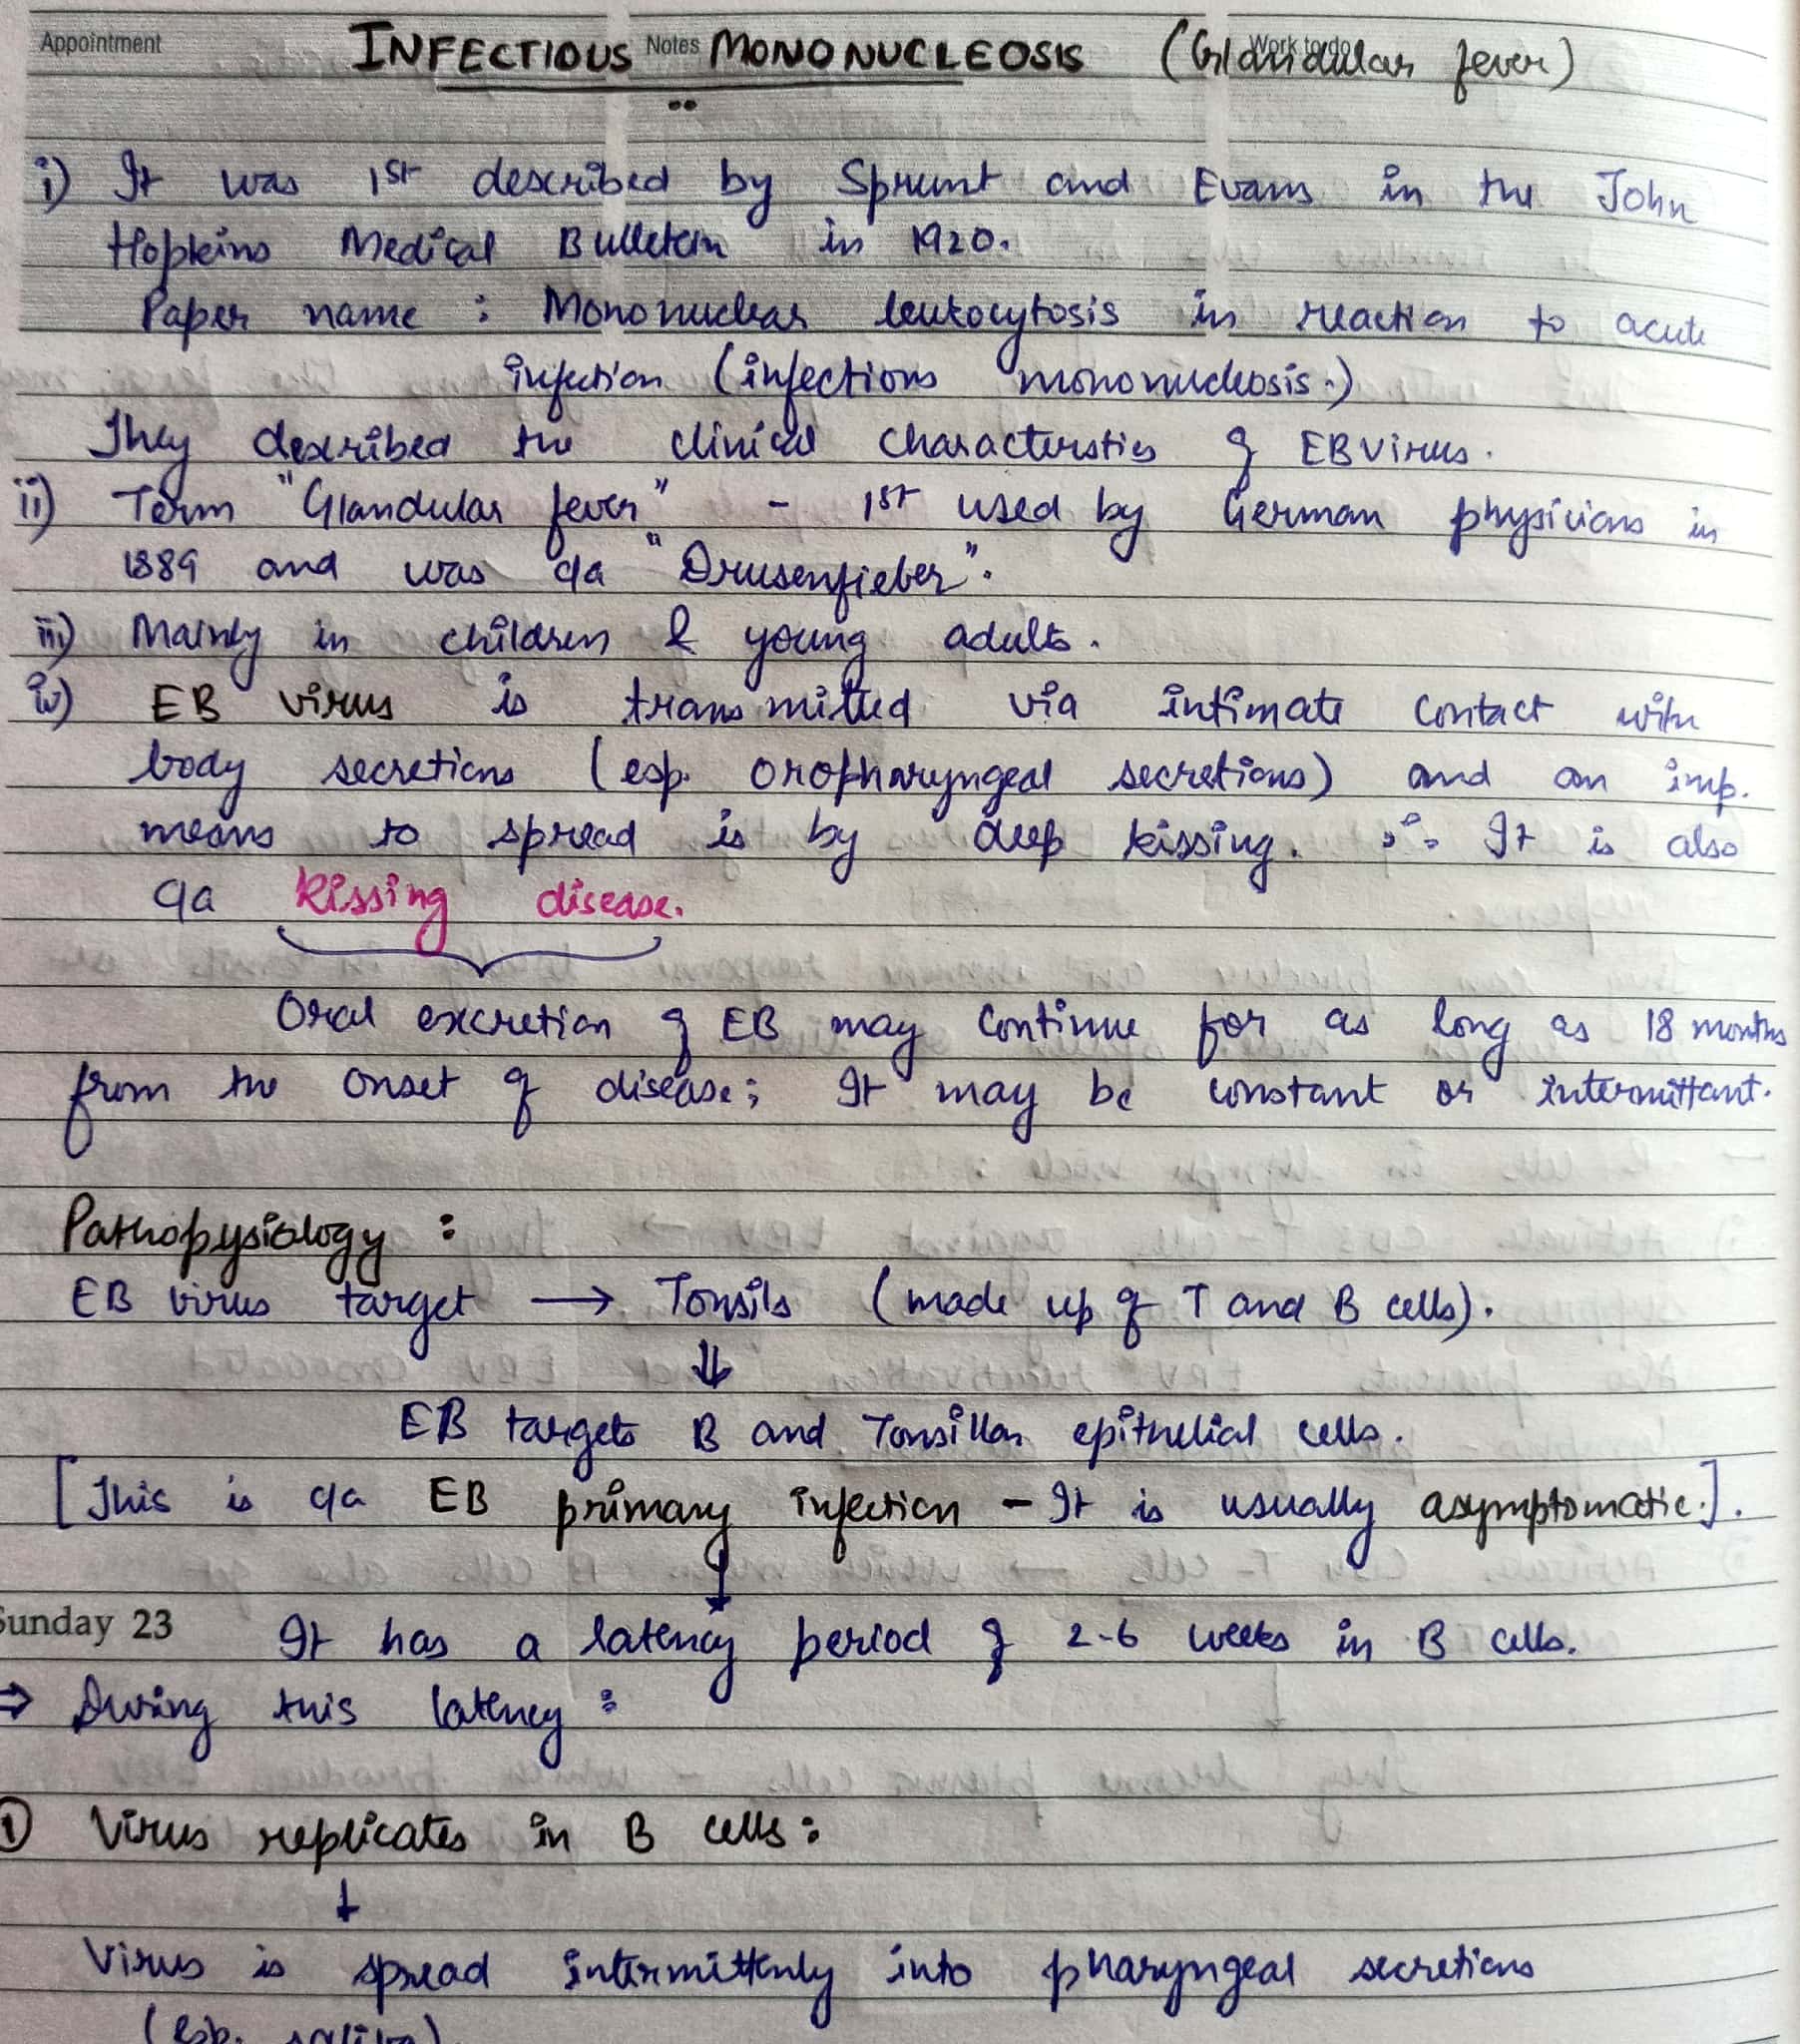 Appointment Notes Work to do
INFECTIOUS MONONUCLEOSIS (Glandular fever)
i) It was 1st described by Sprunt and Evans in the John
Hopkins Medical Bulletein in 1920.
Paper name : Mononuclear leukocytosis in reaction to acute
infection (infections mononucleosis.)
They described the clinical characterstics of EB virus.
ii) Term "Glandular fever" - 1st used by German physicians in
1889 and was c/a "Drusenfieber".
iii) Mainly in children & young adults.
iv) EB virus is transmitted via intimate contact with
body secretions (esp. oropharyngeal secretions) and an imp.
means to spread is by deep kissing. ∴ It is also
c/a kissing disease.
Oral excretion of EB may continue for as long as 18 months
from the onset of disease; It may be constant or intermittant.
Pathopysiology :
EB virus target → Tonsils (made up of T and B cells).
⇓
EB targets B and Tonsillar epithelial cells.
[This is c/a EB primary infection - It is usually asymptomatic.].
↓
Sunday 23
It has a latency period of 2-6 weeks in B cells.
⇒ During this latency :
① Virus replicates in B cells :
↓
Virus is spread intermittenly into pharyngeal secretions
(esp. saliva)